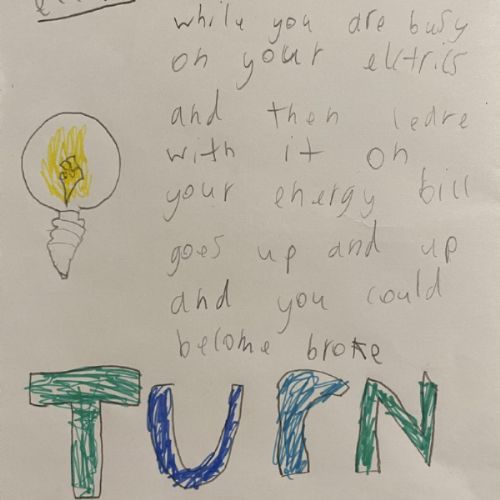 while you are busy
on your elctrics
and then leave
with it on
your energy bill
goes up and up
and you could
become broke
TUrN